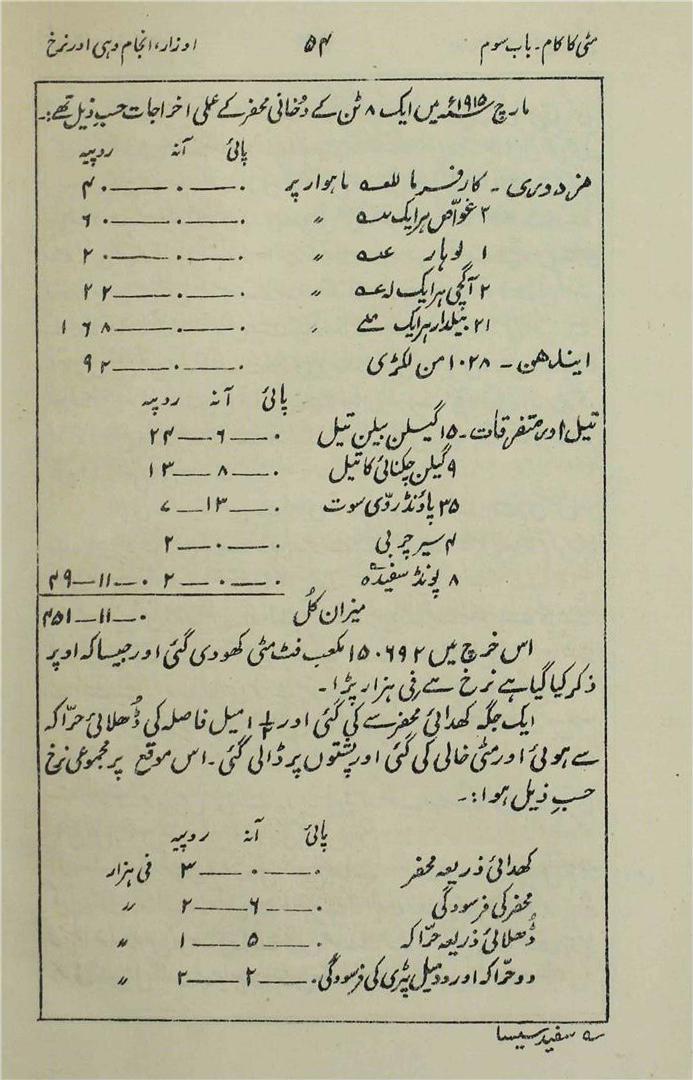 مٹی کا کام۔ باب سوم ۵۴ اوزار، انجام دہی اور نرخ
مارچ ۱۹۱۵ء میں ایک ۸ ٹن کے دخانی محفر کے عملی اخراجات حسبِ ذیل تھے:۔
پائی آنہ روپیہ
مزدوری ۔ کارفرما ماہوار پر ۰—۰—۴۰
۲ غوّاص ہر ایک 〃 ۰—۰—۶۰
۱ لوہار 〃 ۰—۰—۲۰
۲ آگچی ہر ایک 〃 ۰—۰—۲۲
۲۱ بیلدار ہر ایک 〃 ۰—۰—۱۶۸
ایندھن ۔ ۱۰۲۸ من لکڑی ۰—۰—۹۲
پائی آنہ روپیہ
تیل اور متفرقات ۔ ۱۵ گیلن بیلن تیل ۰—۶—۲۴
۹ گیلن چکنائی کا تیل ۰—۸—۱۳
۳۵ پاؤنڈ ردّی سوت ۰—۱۳—۷
۴ سیر چربی ۰—۰—۲
۸ پونڈ سفیدہ ۰—۰—۲ ۰—۱۱—۴۹
میزان کُل ۰—۱۱—۴۵۱
اس خرچ میں ۱۵۰۶۹۲ مکعب فٹ مٹی کھودی گئی اور جیسا کہ اوپر
ذکر کیا گیا ہے نرخ فی ہزار پڑا۔
ایک جگہ کھدائی محفر سے کی گئی اور ۱ ۱/۲ میل فاصلہ کی ڈُھلائی حرّاکہ
سے ہوئی اور مٹی خالی کی گئی اور پشتوں پر ڈالی گئی۔ اس موقع پر مجموعی نرخ
حسبِ ذیل ہوا:۔
پائی آنہ روپیہ
کھدائی ذریعہ محفر ۰—۰—۳ فی ہزار
محفر کی فرسودگی ۰—۶—۲ 〃
ڈُھلائی ذریعہ حرّاکہ ۰—۵—۱ 〃
دو حرّاکہ اور دو میل پٹری کی فرسودگی ۰—۲—۲ 〃
سفید سیسا